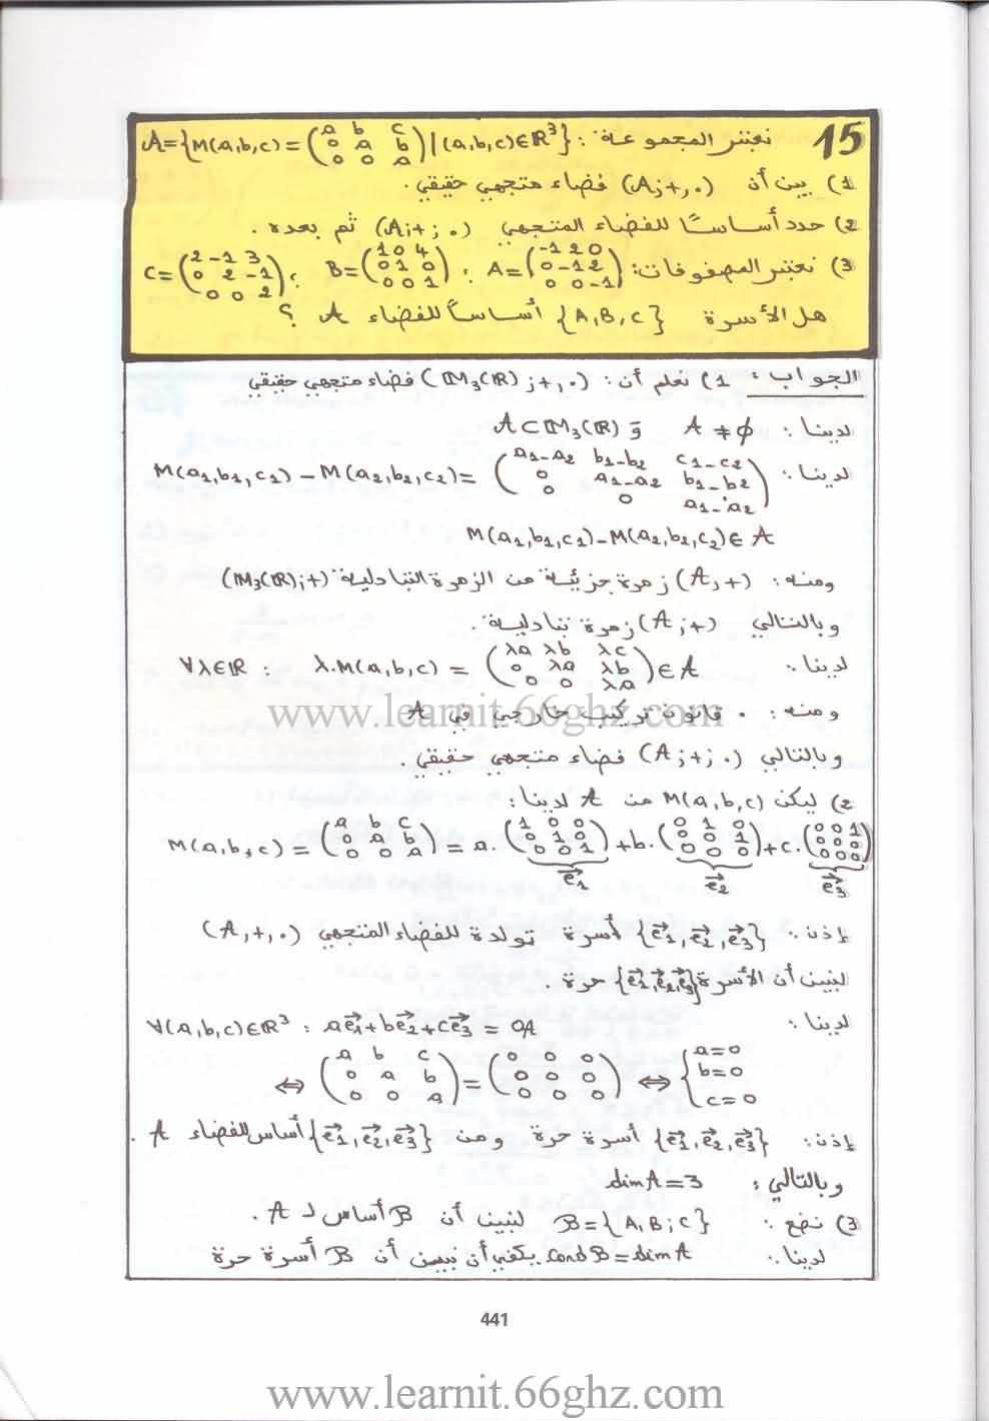 15 نعتبر المجموعة: A={M(a,b,c)=(a b c / 0 a b / 0 0 a)|(a,b,c)∈ℝ³}
1) بين أن (A;+,.) فضاء متجهي حقيقي.
2) حدد أساسًا للفضاء المتجهي (A;+;.) ثم بعده.
3) نعتبر المصفوفات: A=(-1 2 0 / 0 -1 2 / 0 0 -1) ; B=(1 0 4 / 0 1 0 / 0 0 1) ; C=(2 -1 3 / 0 2 -1 / 0 0 2)
هل الأسرة {A,B,C} أساسا للفضاء A ؟
الجواب: 1) نعلم أن: (M₃(ℝ);+,.) فضاء متجهي حقيقي
لدينا: A≠∅ و A⊂M₃(ℝ)
لدينا: M(a₁,b₁,c₁)-M(a₂,b₂,c₂)=(a₁-a₂ b₁-b₂ c₁-c₂ / 0 a₁-a₂ b₁-b₂ / 0 0 a₁-a₂)
M(a₁,b₁,c₁)-M(a₂,b₂,c₂)∈A
ومنه: (A,+) زمرة جزئية من الزمرة التبادلية (M₃(ℝ);+)
وبالتالي (A;+) زمرة تبادلية.
لدينا: ∀λ∈ℝ : λ.M(a,b,c)=(λa λb λc / 0 λa λb / 0 0 λa)∈A
ومنه: . قانون تركيب خارجي في A
www.learnit.66ghz.com
وبالتالي (A;+;.) فضاء متجهي حقيقي.
2) ليكن M(a,b,c) من A لدينا:
M(a,b,c)=(a b c / 0 a b / 0 0 a)=a.(1 0 0 / 0 1 0 / 0 0 1)+b.(0 1 0 / 0 0 1 / 0 0 0)+c.(0 0 1 / 0 0 0 / 0 0 0)
e₁ e₂ e₃
إذن: {e₁,e₂,e₃} أسرة تولدة للفضاء المتجهي (A,+,.)
لنبين أن الأسرة {e₁,e₂,e₃} حرة.
لدينا: ∀(a,b,c)∈ℝ³ : ae₁+be₂+ce₃=0A
⇔ (a b c / 0 a b / 0 0 a)=(0 0 0 / 0 0 0 / 0 0 0) ⇔ {a=0 b=0 c=0
إذن: {e₁,e₂,e₃} أسرة حرة ومن {e₁,e₂,e₃} أساس للفضاء A.
وبالتالي: dimA=3
3) نضع: B={A,B;C} لنبين أن B أساس لـ A.
لدينا: card B=dim A يكفي أن نبين أن B أسرة حرة
441
www.learnit.66ghz.com